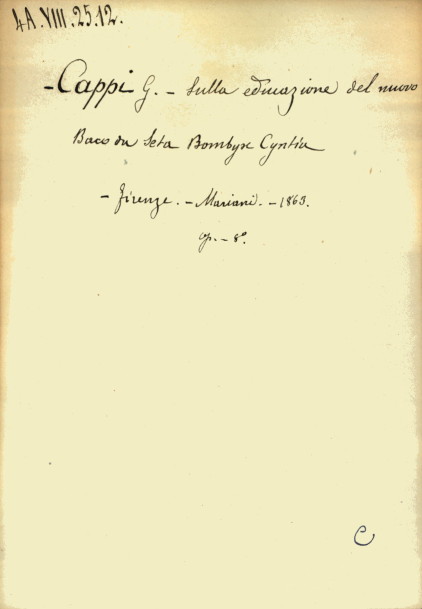 4A.VIII.25.12.
- Cappi G. - Sulla educazione del nuovo
Baco da Seta Bombyx Cyntia
- Firenze. - Mariani. - 1863.
op. - 8°.
C